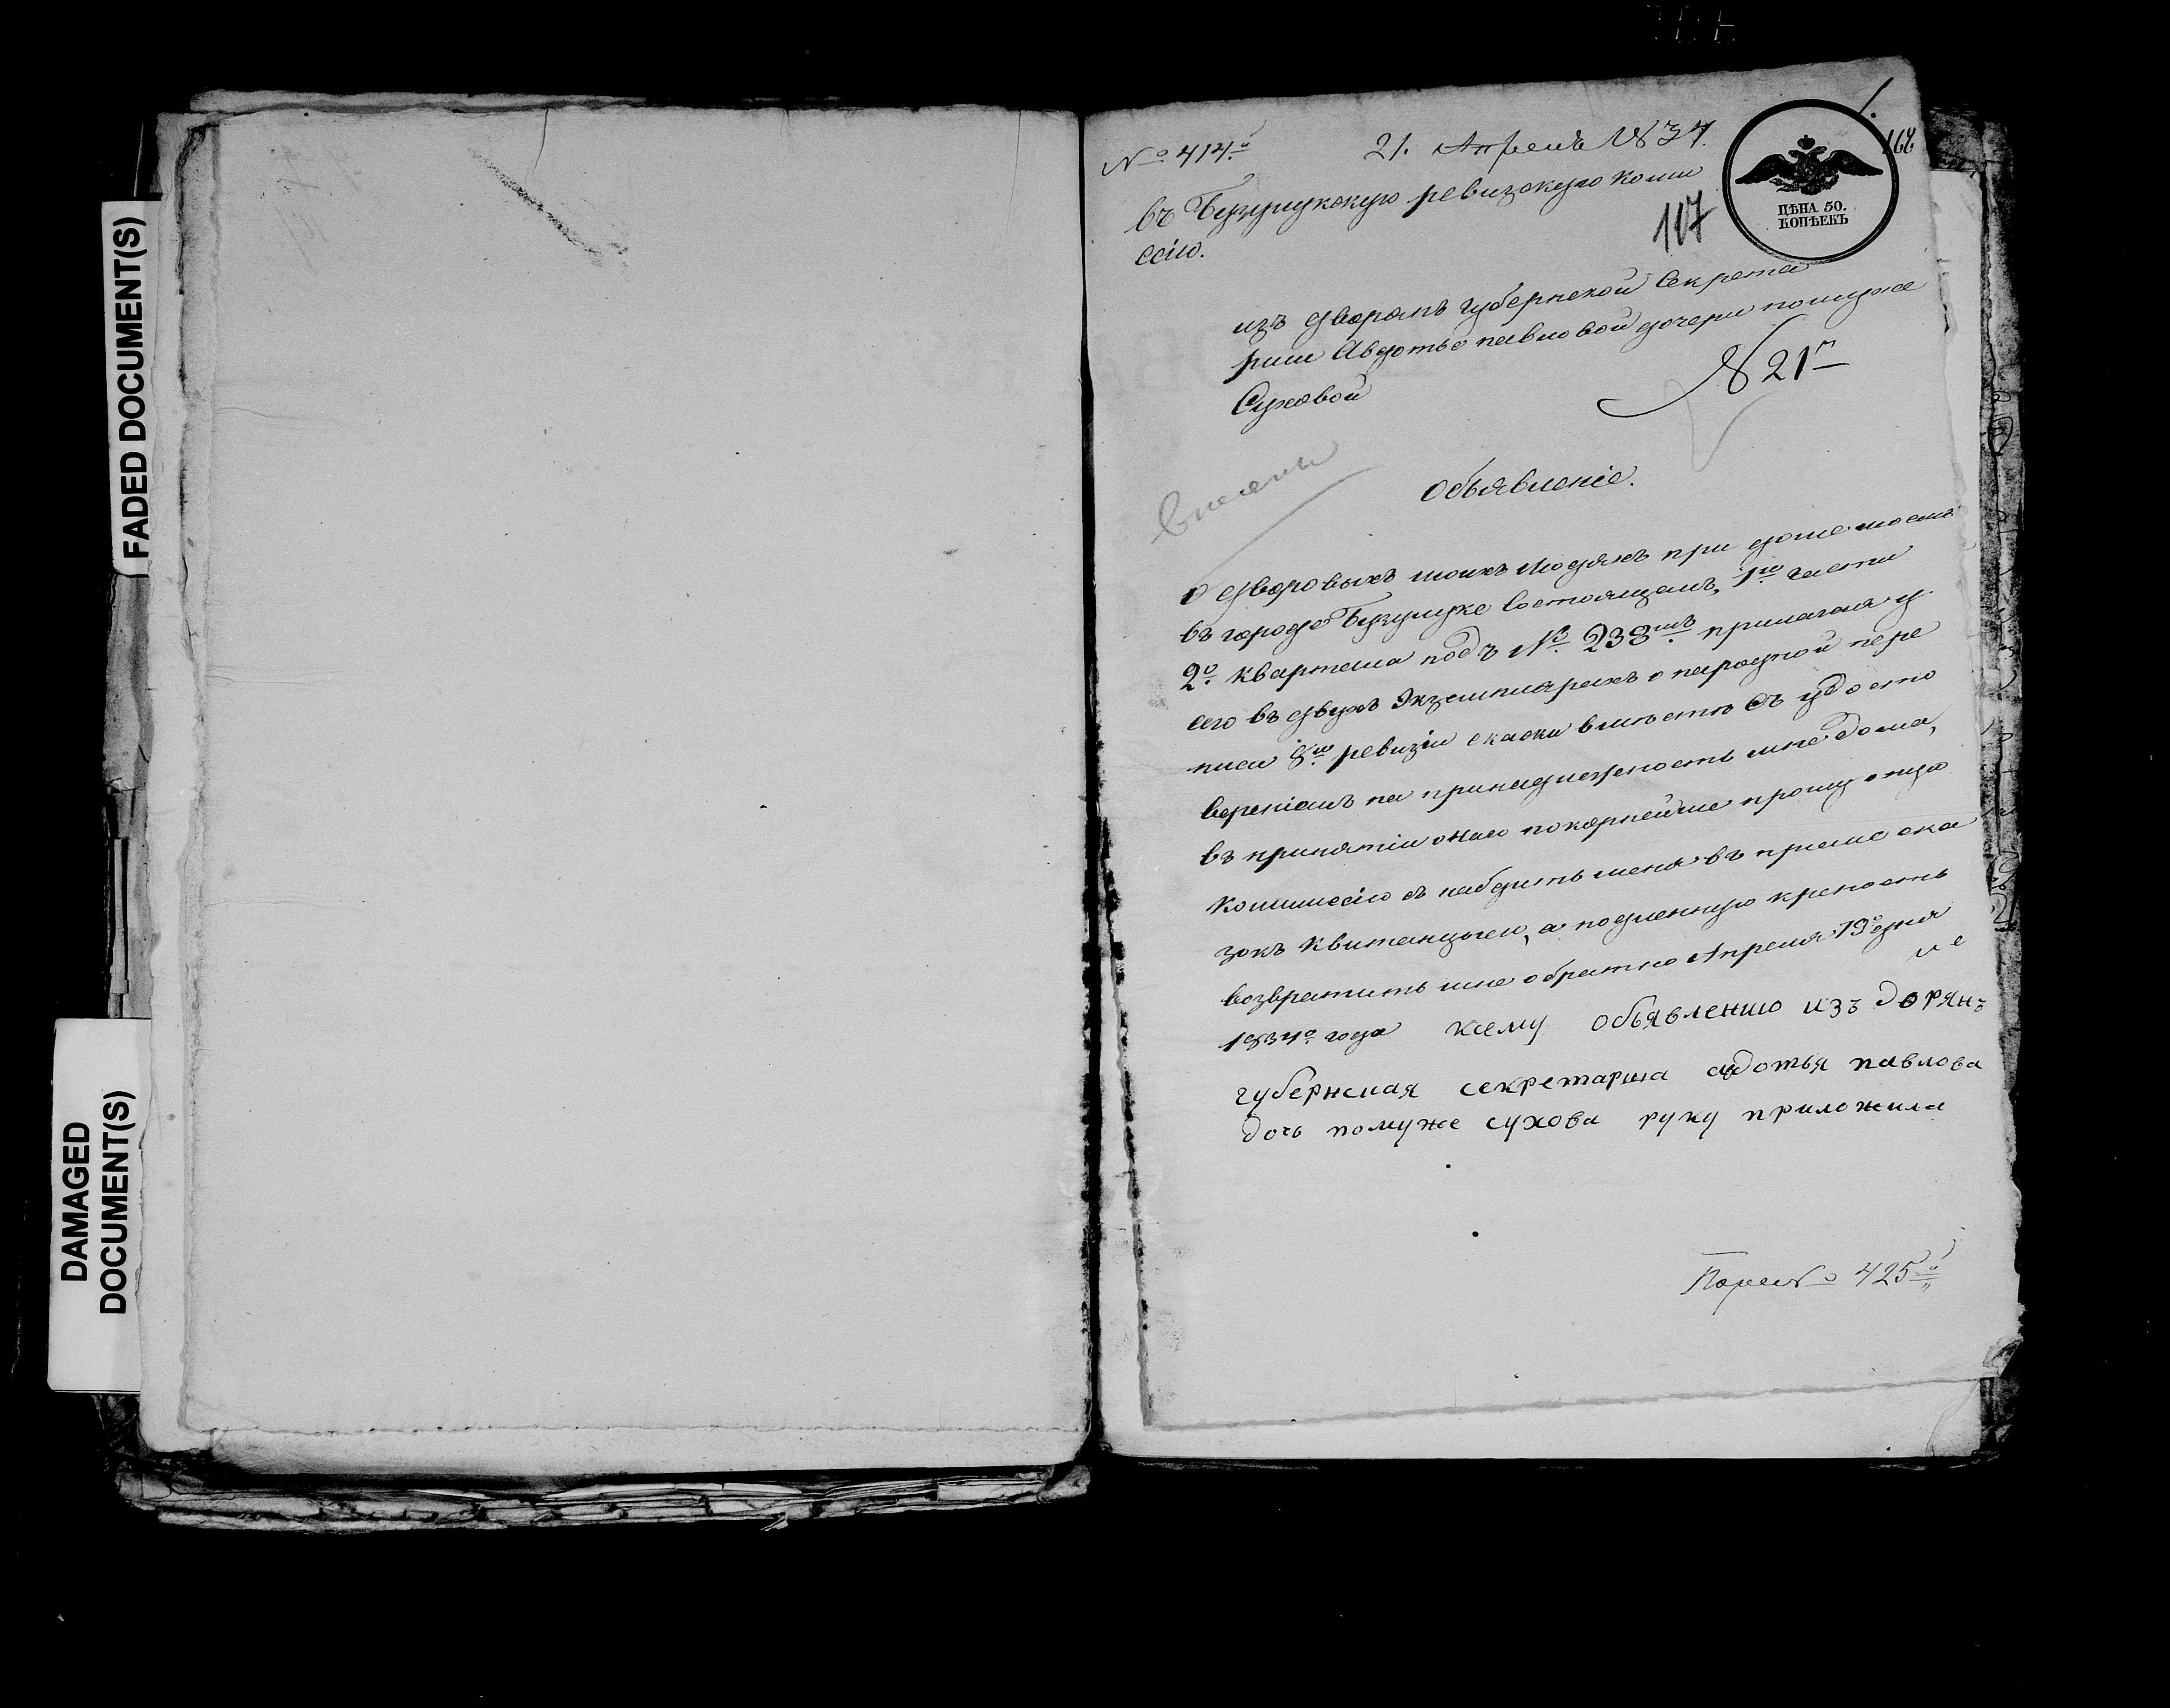 FADED DOCUMENT(S)
DAMAGED
DOCUMENT(S)
№ 414.
21. Апреля 1834.
ЦѢНА 50.
КОПѢЕКЪ
въ Бузулукскую ревизскую коми
сію.
117
изъ дворянъ губернской Секрета
рши Авдотье павловой дочери помуже
Суховой
№ 21
Объявленіе.
о дворовыхъ моихъ людяхъ при доме моемъ
въ городе Бузулуке состоящемъ, 1й части
2го квартала подъ № 238мъ прилагая у
сего въ двухъ Экземплярахъ о народной пере
писи 8й ревизіи скаски вместе съ удосто
вереніемъ на принадлежность мне дома,
въ принятіи оныхъ покорнейше прошу оную
Коммисію снабдить меня въ приеме ска
зокъ Квитанцыею, а подленную крепость
возвратить мне обратно Апреля 19 дня
1834го года ксему объявлению изъ дворянъ
губернская секретарша авдотья павлова
дочь помуже сухова руку приложила
425